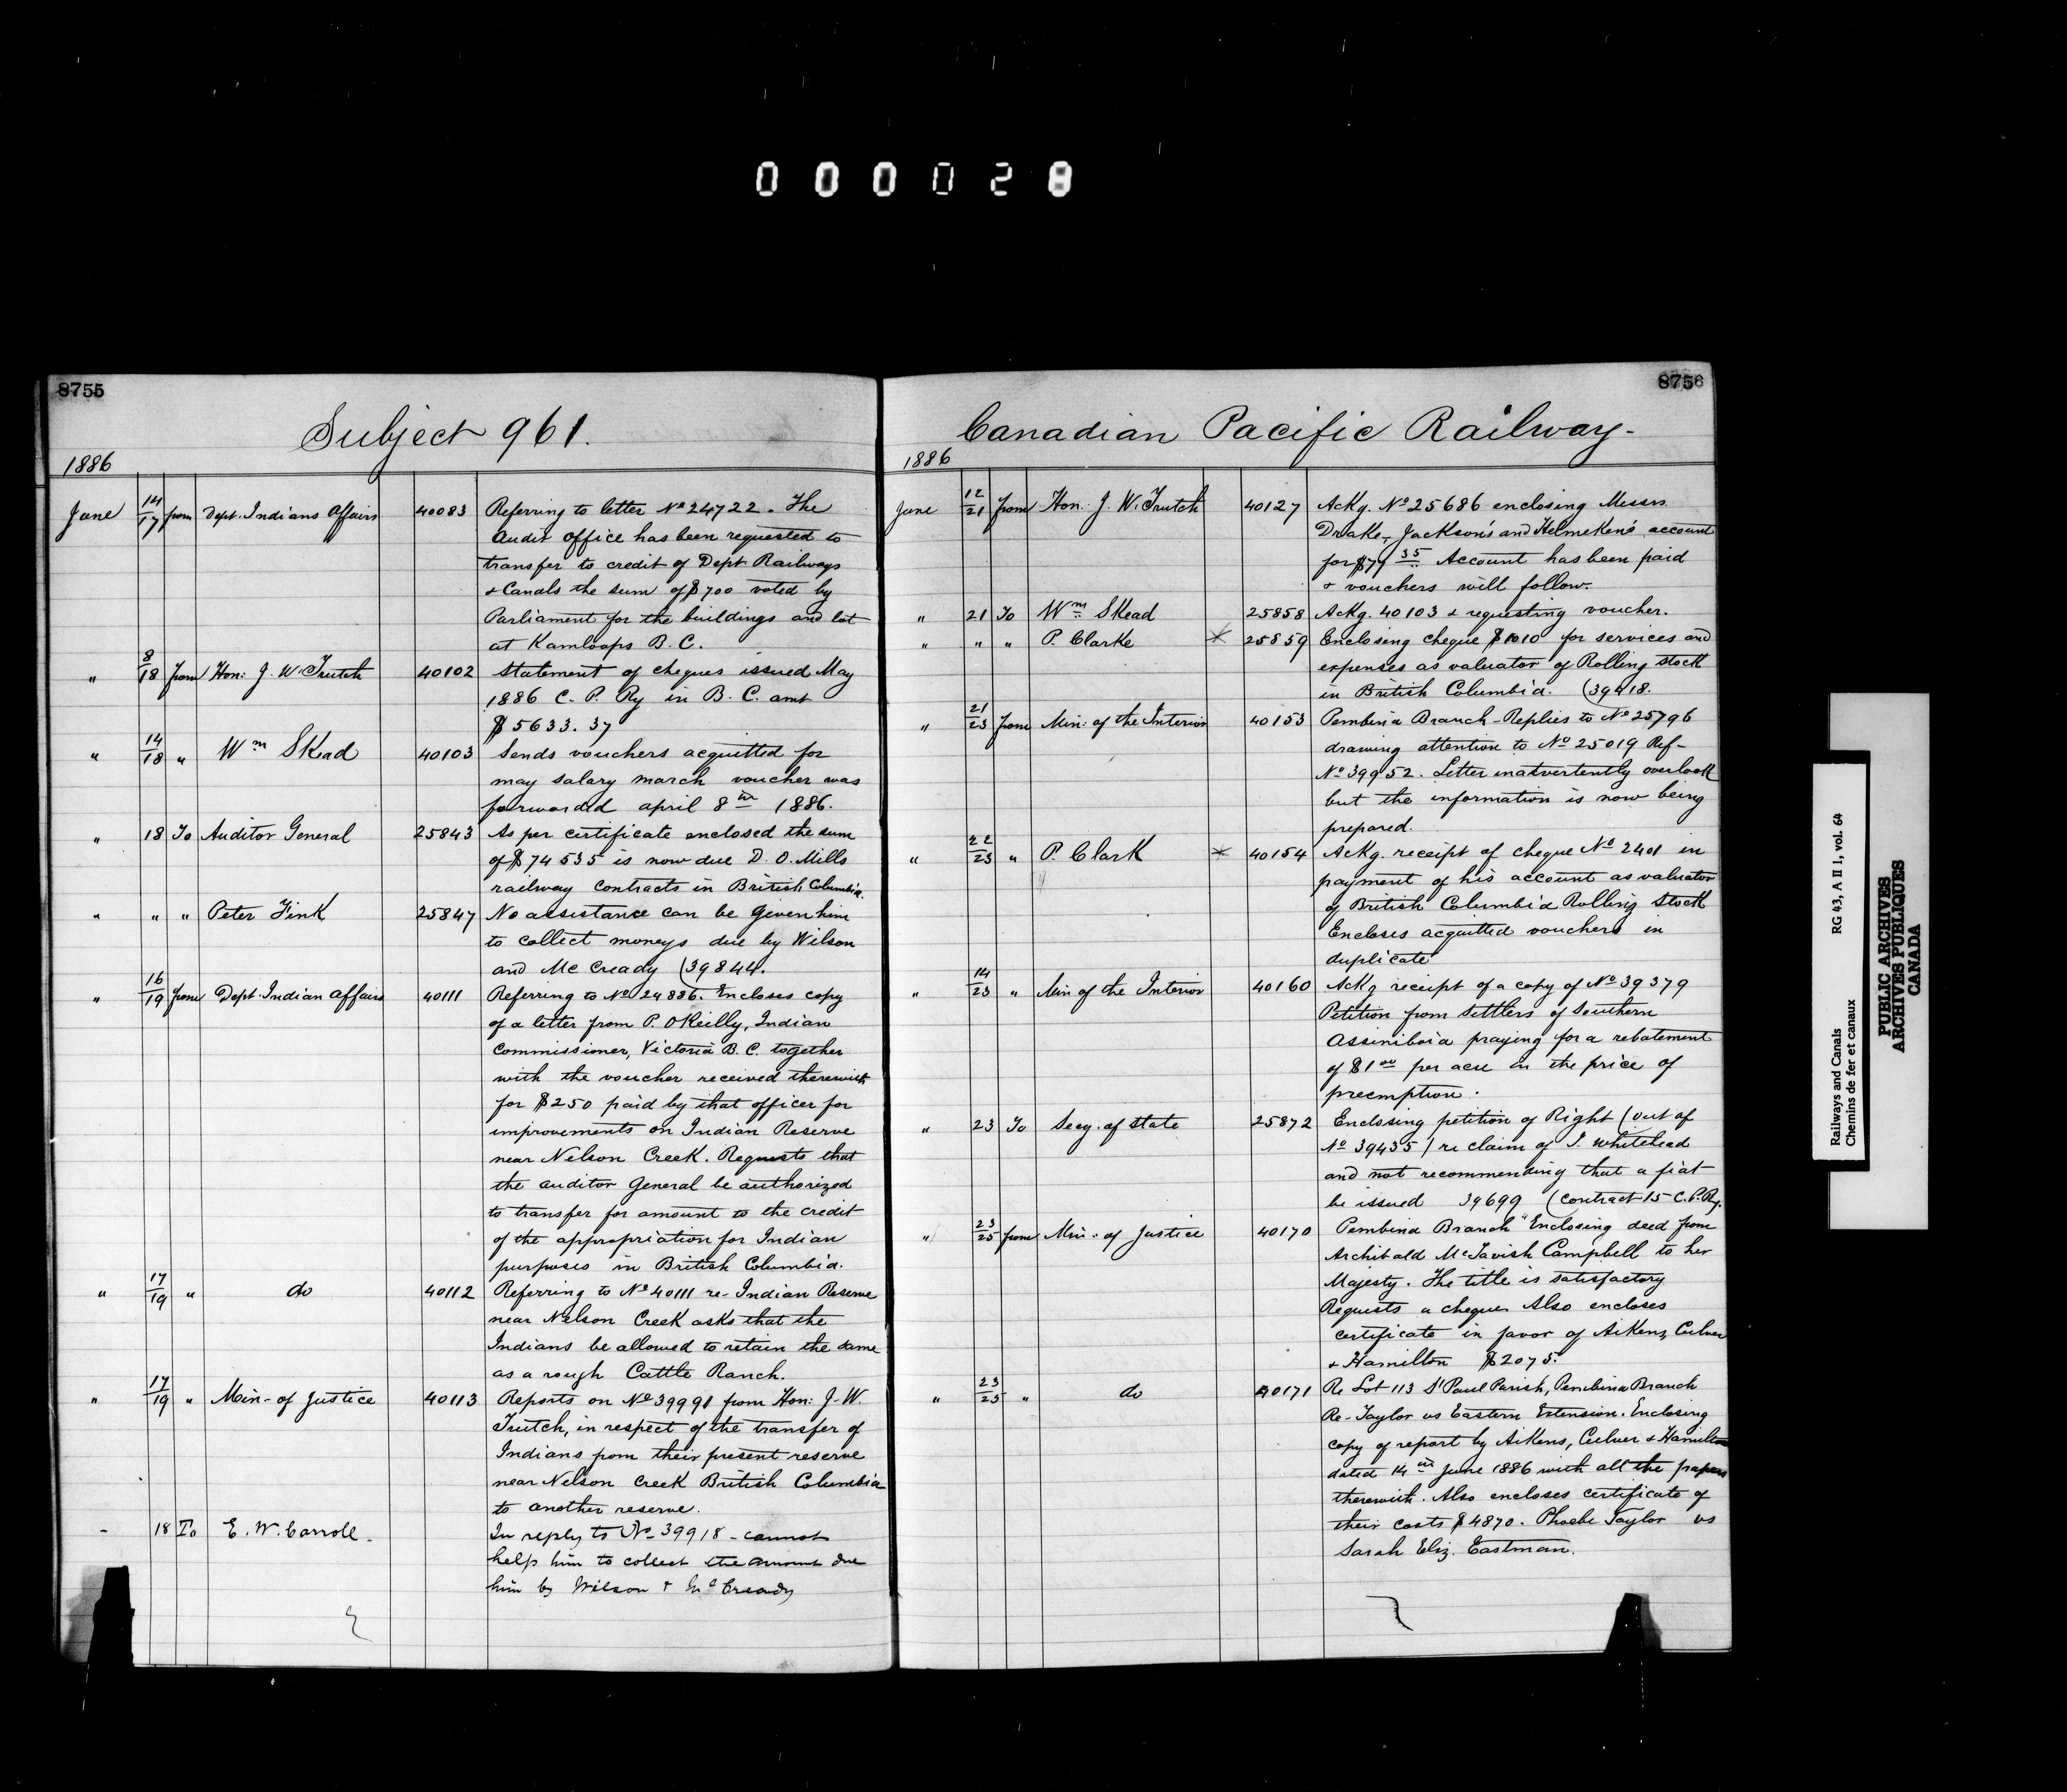 000028
8755
Subject 961.
1886
June 14/17 from Dept. Indians Affairs 40083 Referring to letter No 24722. The
Audit office has been requested to
transfer to credit of Dept Railways
& Canals the sum of $700 voted by
Parliament for the buildings and lot
at Kamloops B.C.
" 8/18 from Hon: J. W. Trutch 40102 Statement of cheques issued May
1886 C. P. Ry in B. C. amt
$5633.37
" 14/18 " Wm Skead 40103 Sends vouchers acquitted for
may salary march voucher was
forwarded april 8th 1886.
" 18 To Auditor General 25843 As per certificate enclosed the sum
of $74535 is now due D. O. Mills
railway contracts in British Columbia.
" " " Peter Fink 25847 No assistance can be given him
to collect moneys due by Wilson
and McCready (39844.
" 16/19 from Dept. Indian Affairs 40111 Referring to No 24886. Encloses copy
of a letter from P. OReilly, Indian
Commissioner, Victoria B.C. together
with the voucher received therewith
for $250 paid by that officer for
improvements on Indian Reserve
near Nelson Creek. Requests that
the Auditor General be authorized
to transfer for amount to the credit
of the appropriation for Indian
purposes in British Columbia.
" 17/19 " do 40112 Referring to No 40111 re-Indian Reserve
near Nelson Creek asks that the
Indians be allowed to retain the same
as a rough Cattle Ranch.
" 17/19 " Min- of Justice 40113 Reports on No 39991 from Hon: J. W.
Trutch, in respect of the transfer of
Indians from their present reserve
near Nelson Creek British Columbia
to another reserve.
- 18 To E. W. Carroll. In reply to No 39918 - cannot
help him to collect the amount due
him by Wilson & McCready
8756
Canadian Pacific Railway-
1886
June 12/21 from Hon. J. W. Trutch 40127 Ackg. No 25686 enclosing Messrs.
Drake, Jackson's and Helmeken's account
for $79 35 Account has been paid
& vouchers will follow.
" 21 To Wm Skead 25858 Ackg. 40103 & requesting voucher.
" " " P. Clarke 25859 Enclosing cheque $1010 for services and
expenses as valuator of Rolling stock
in British Columbia. (39418.
" 21/23 from Min: of the Interior 40153 Pembina Branch - Replies to No 25796
drawing attention to No 25019 Ref-
No 39952. Letter inadvertently overlook
but the information is now being
prepared.
" 22/23 " P. Clark 40154 Ackg. receipt of cheque No 2401 in
payment of his account as valuator
of British Columbia Rolling Stock
Encloses acquitted vouchers in
duplicate
" 14/23 " Min of the Interior 40160 Ackg receipt of a copy of No 39379
Petition from Settlers of Southern
Assiniboia praying for a rebatement
of $1 00 per acre in the price of
preemption.
" 23 To Secy. of State 25872 Enclosing petition of Right (out of
No 39435) re claim of J. Whitehead
and not recommending that a fiat
be issued 39699 (Contract 15 C.P.Ry.
" 23/25 from Min: of Justice 40170 Pembina Branch" Enclosing deed from
Archibald McTavish Campbell to her
Majesty. The title is satisfactory
Requests a cheque Also encloses
certificate in favor of Aikens, Culver
& Hamilton $2075.
" 23/25 " do 40171 Re Lot 113 St Paul Parish, Pembina Branch
Re-Taylor vs Eastern Extension. Enclosing
copy of report by Aikens, Culver & Hamilton
dated 14th June 1886 with all the papers
therewith. Also encloses certificate of
their costs $4870. Phoebe Taylor vs
Sarah Eliz. Eastman.
Railways and Canals RG 43, A II 1, vol. 64
Chemins de fer et canaux
PUBLIC ARCHIVES
ARCHIVES PUBLIQUES
CANADA